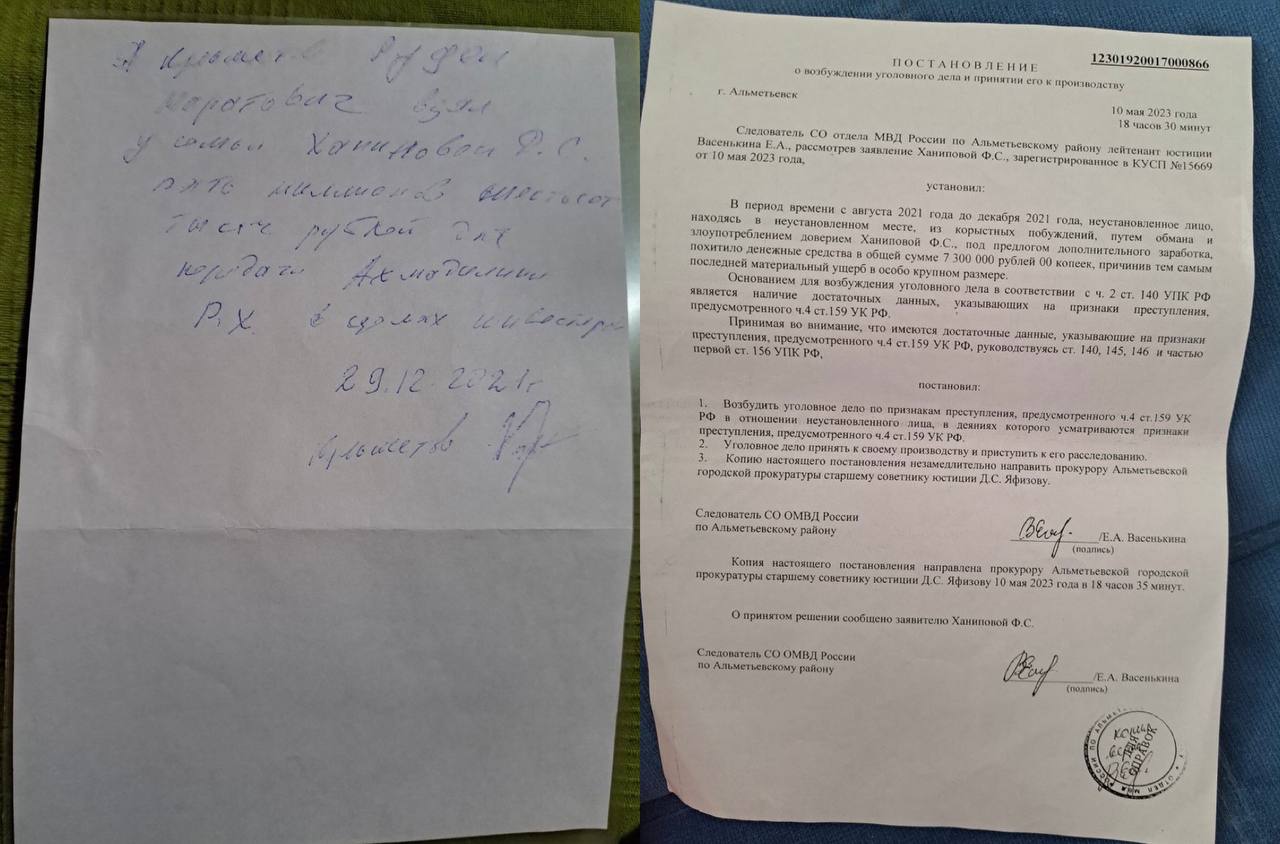 Я Крыметов Руфан
Маратович взял
у самой Ханиповой Ф.С.
пять миллионов шестьсот
тысяч рублей для
передачи Ахмадуллину
Р.Х. в
29.12.2021г.
12301920017000866
ПОСТАНОВЛЕНИЕ
о возбуждении уголовного дела и принятии его к производству
г. Альметьевск
10 мая 2023 года
18 часов 30 минут
Следователь СО отдела МВД России по Альметьевскому району лейтенант юстиции
Васенькина Е.А., рассмотрев заявление Ханиповой Ф.С., зарегистрированное в КУСП №15669
от 10 мая 2023 года,
установил:
В период времени с августа 2021 года до декабря 2021 года, неустановленное лицо,
находясь в неустановленном месте, из корыстных побуждений, путем обмана и
злоупотреблением доверием Ханиповой Ф.С., под предлогом дополнительного заработка,
похитило денежные средства в общей сумме 7 300 000 рублей 00 копеек, причинив тем самым
последней материальный ущерб в особо крупном размере.
Основанием для возбуждения уголовного дела в соответствии с ч. 2 ст. 140 УПК РФ
является наличие достаточных данных, указывающих на признаки преступления,
предусмотренного ч.4 ст.159 УК РФ.
Принимая во внимание, что имеются достаточные данные, указывающие на признаки
преступления, предусмотренного ч.4 ст.159 УК РФ, руководствуясь ст. 140, 145, 146 и частью
первой ст. 156 УПК РФ,
постановил:
1. Возбудить уголовное дело по признакам преступления, предусмотренного ч.4 ст.159 УК
РФ в отношении неустановленного лица, в деяниях которого усматриваются признаки
преступления, предусмотренного ч.4 ст.159 УК РФ.
2. Уголовное дело принять к своему производству и приступить к его расследованию.
3. Копию настоящего постановления незамедлительно направить прокурору Альметьевской
городской прокуратуры старшему советнику юстиции Д.С. Яфизову.
Следователь СО ОМВД России
по Альметьевскому району
/Е.А. Васенькина
(подпись)
Копия настоящего постановления направлена прокурору Альметьевской городской
прокуратуры старшему советнику юстиции Д.С. Яфизову 10 мая 2023 года в 18 часов 35 минут.
О принятом решении сообщено заявителю Ханиповой Ф.С.
Следователь СО ОМВД России
по Альметьевскому району
/Е.А. Васенькина
(подпись)
ДЛЯ
СПРАВОК